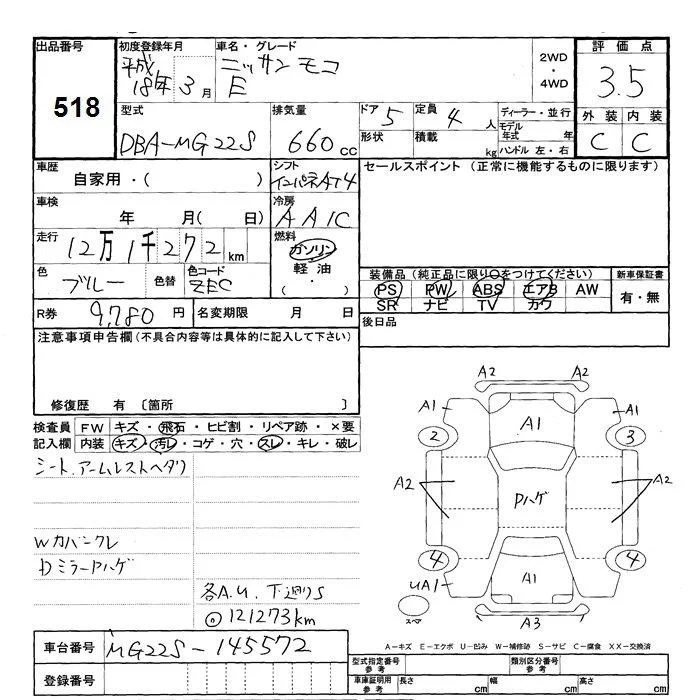 出品番号
518
初度登録年月
平成 18年 3月
車名・グレード
ニッサン モコ
E
2WD
・
4WD
評価点
3.5
外装 内装
C C
型式
DBA-MG22S
排気量
660 cc
ドア 5
形状
定員 4 人
積載 kg
ディーラー・並行
モデル年式 年
ハンドル 左・右
車歴
自家用・( )
シフト
インパネAT4
セールスポイント (正常に機能するものに限ります)
車検
年 月( 日)
冷房
AAC
走行
12万1千272 km
燃料
ガソリン
軽油
( ・ )
色
ブルー
色替
色コード
ZEC
装備品 (純正品に限り○をつけてください)
PS PW ABS エアB AW
SR ナビ TV カワ
新車保証書
有・無
R券 9,780 円
名変期限 月 日
後日品
注意事項申告欄 (不具合内容等は具体的に記入して下さい)
修復歴 有 〔箇所 〕
検査員記入欄
FW キズ・飛石・ヒビ割・リペア跡・×要
内装 キズ・汚レ・コゲ・穴・スレ・キレ・破レ
シート、アームレストヘタリ
Wカバークレ
Dミラーハゲ
各A.U. 下廻りS
◎121273km
A2 A2
A1 A1 A1
2 3
A2 Pハゲ A2
4 4
UA1 A1
A3
スペア
A-キズ E-エクボ U-凹み W-補修跡 S-サビ C-腐食 XX-交換済
車台番号 MG22S-145572
登録番号
型式指定番号 参考
類別区分番号 参考
車庫証明用 参考
長さ cm 幅 cm 高さ cm